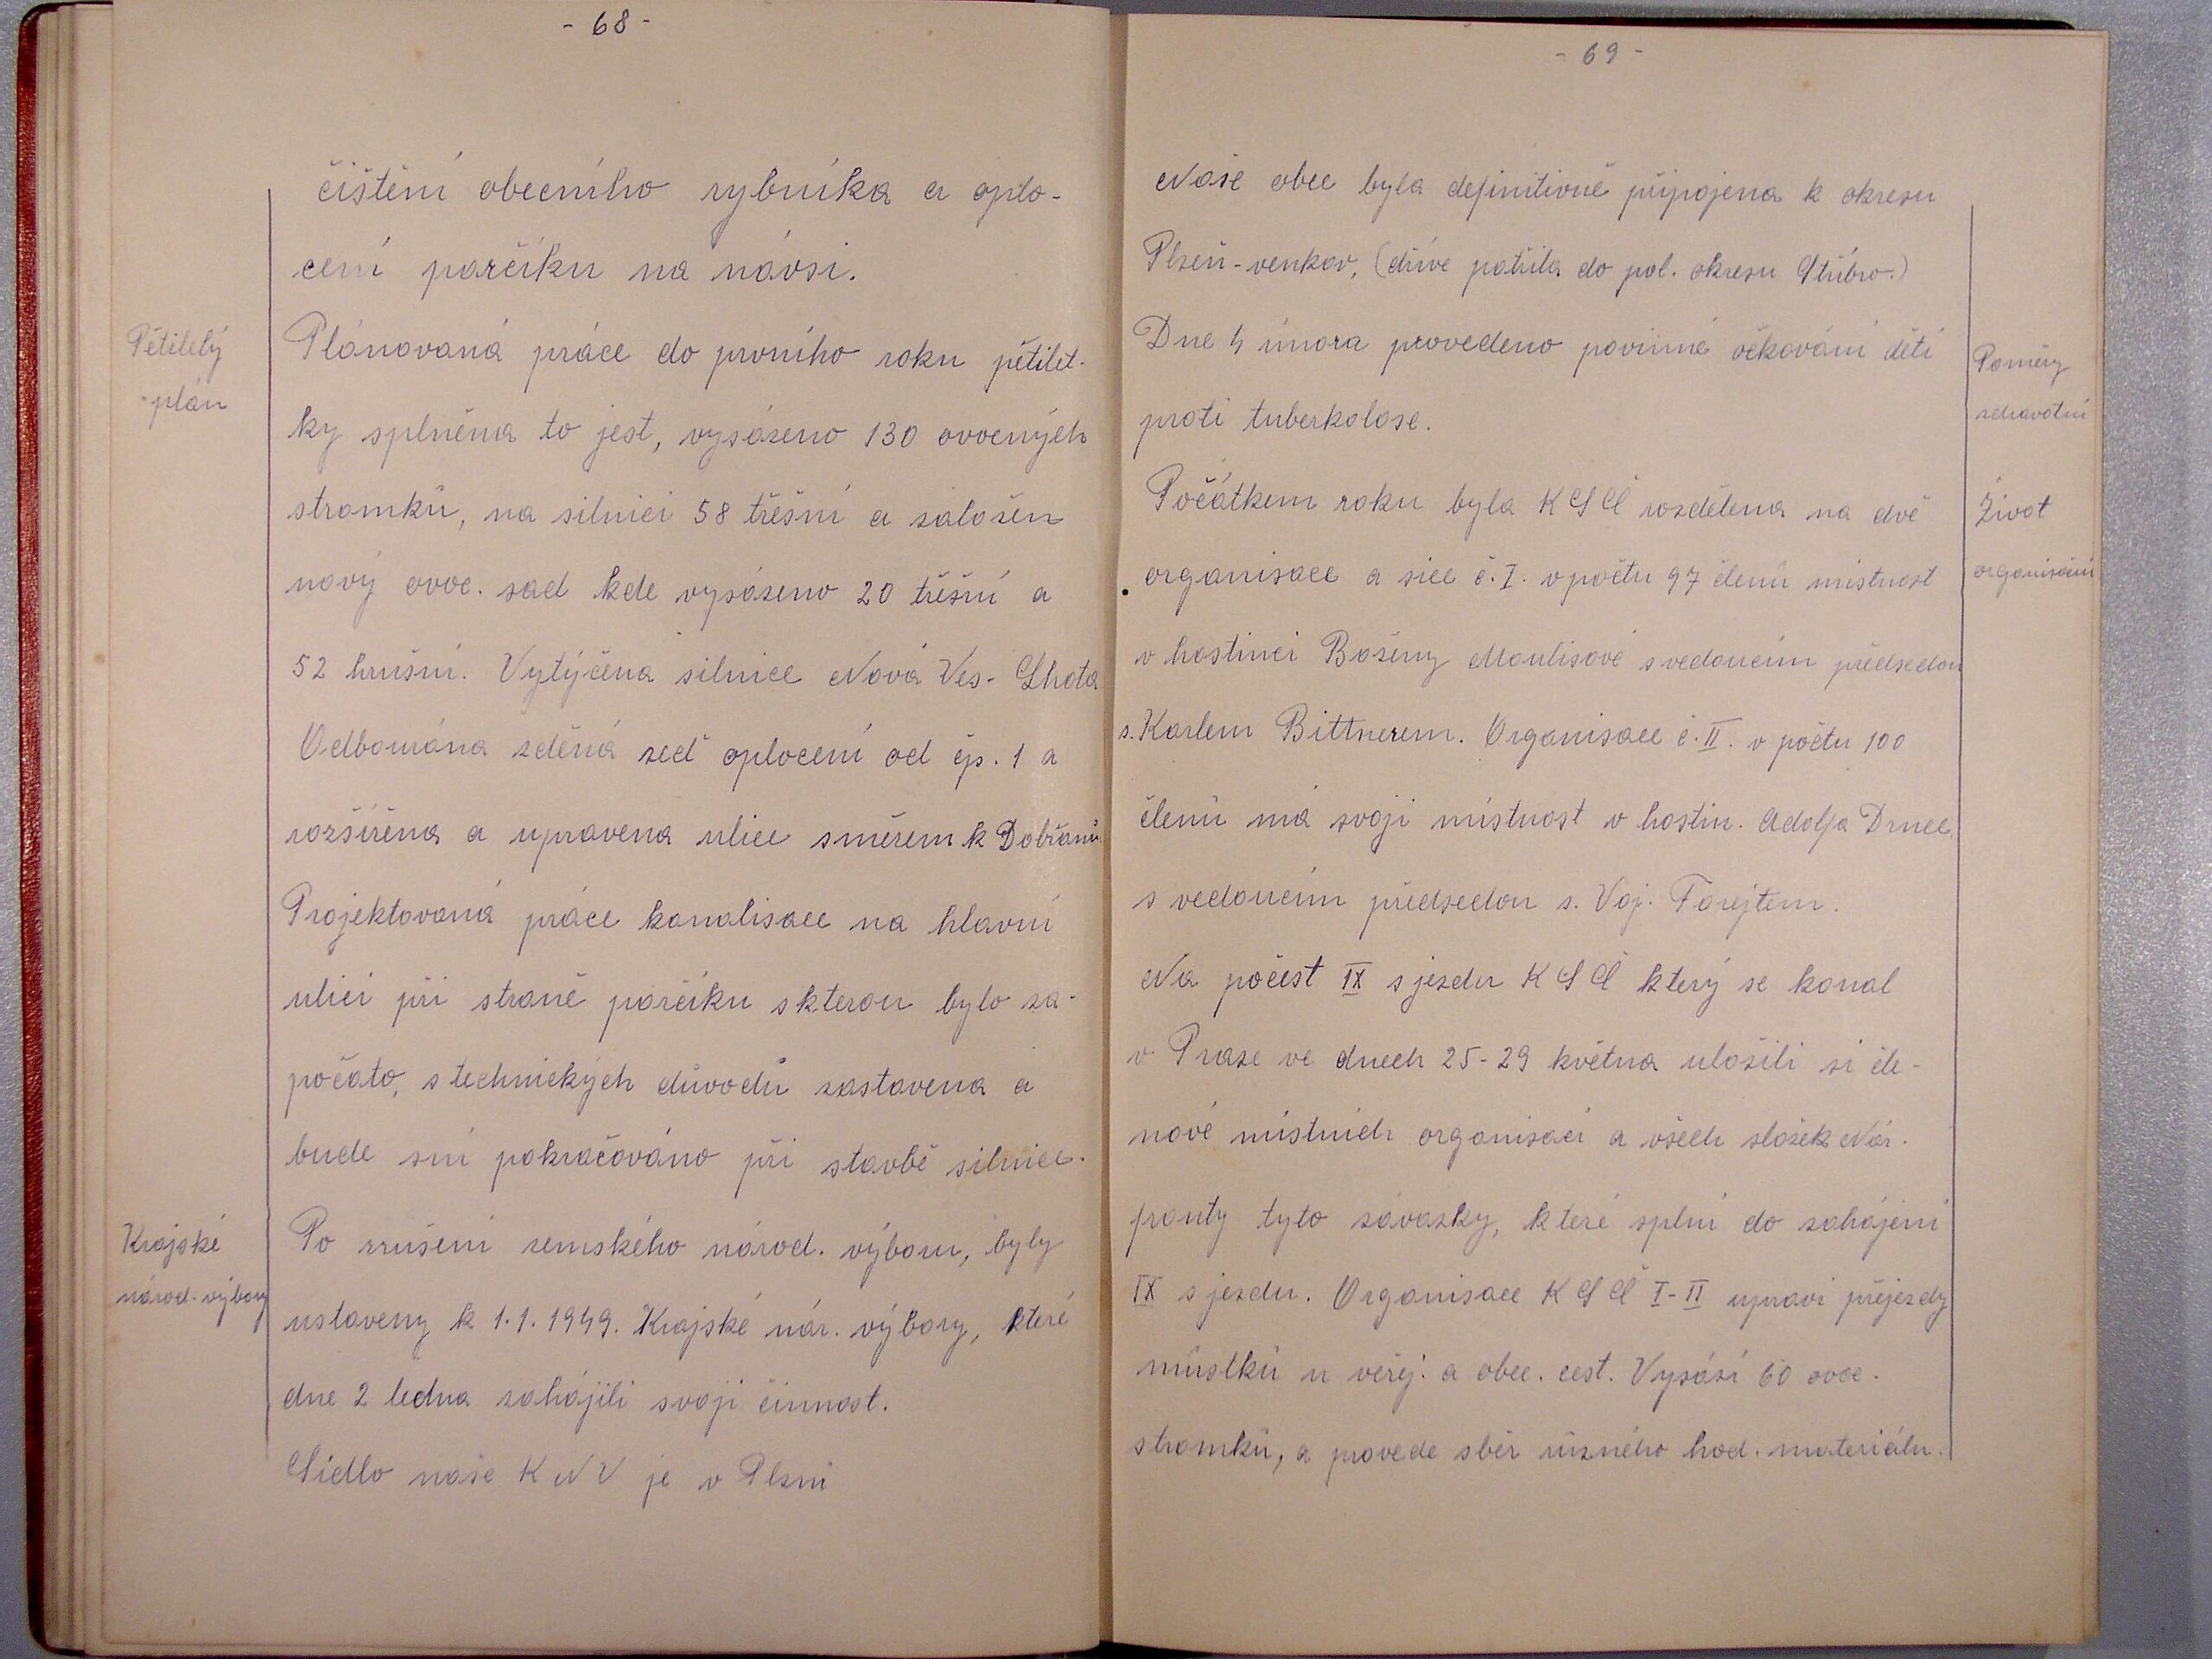 - 68 -
čištění obecního rybníka a oplo-
cení parčíku na návsi.
Pětiletý
plán
Plánovaná práce do prvního roku pětilet-
ky splněna to jest, vysázeno 130 ovocných
stromků, na silnici 58 třešní a založen
nový ovoc. sad kde vysázeno 20 třešní a
52 hrušní. Vytýčena silnice Nová Ves - Lhota
Odbourána zděná zeď oplocení od čp. 1 a
rozšířena a upravena ulice směrem k Dobřanů
Projektovaná práce kanalisace na hlavní
ulici při straně parčíku s kterou bylo za-
počato, s technických důvodů zastavena a
bude sní pokračováno při stavbě silnice.
Krajské
národ. výbory
Po zrušení zemského národ. výboru, byly
ustaveny k 1.1.1949. Krajské nár. výbory, které
dne 2 ledna zahájili svoji činnost.
Sídlo naše KNV je v Plzni
- 69 -
Naše obec byla definitivně připojena k okresu
Plzeň-venkov, (dříve patřila do pol. okresu Stříbro.)
Dne 4 února provedeno povinné očkování dětí
proti tuberkolose.
Poměry
zdravotní
Počátkem roku byla KSČ rozdělena na dvě
organisace a sice č. I. v počtu 97 členů místnost
v hostinci Boženy Moulisové s vedoucím předsedou
s. Karlem Bittnerem. Organisace č. II. v počtu 100
členů má svoji místnost v hostin. Adolfa Drnec
s vedoucím předsedou s. Voj. Forejtem.
Život
organisační
Na počest IX sjezdu KSČ který se konal
v Praze ve dnech 25-29 května uložili si čle-
nové místních organisací a všech složek Nár.
fronty tyto závazky, které splní do zahájení
IX sjezdu. Organisace KSČ I-II upraví přejezdy
můstků u veřej. a obec. cest. Vysází 60 ovoc.
stromků, a provede sběr různého hod. materiálu.